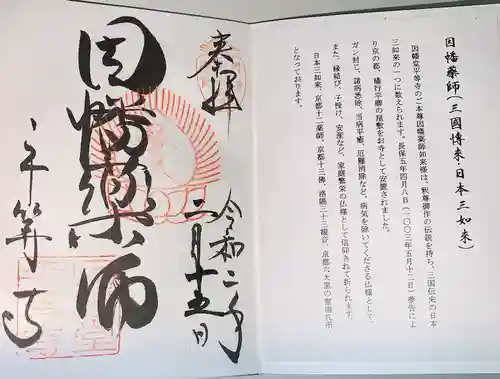 因幡薬師(三國傳来・日本三如来)
因幡堂平等寺のご本尊因幡薬師如来様は、釈尊御作の伝説を持ち、三国伝来の日本
三如来の一つに数えられます。長保五年四月八日(一〇〇三年五月十二日)夢告によ
り京の都、橘行平卿の屋敷をお寺として安置されました。
ガン封じ、諸病悉除、当病平癒、厄難消除など、病気を除いてくださる仏様として、
また、縁結び、子授け、安産など、家庭繁栄の仏様として信仰されて折られます。
日本三如来、京都十二薬師、京都十三佛、洛陽三十三観音、京都六大黒の霊場札所
となっております。
奉拝
令和二年
二月十五日
因幡薬師
平等寺